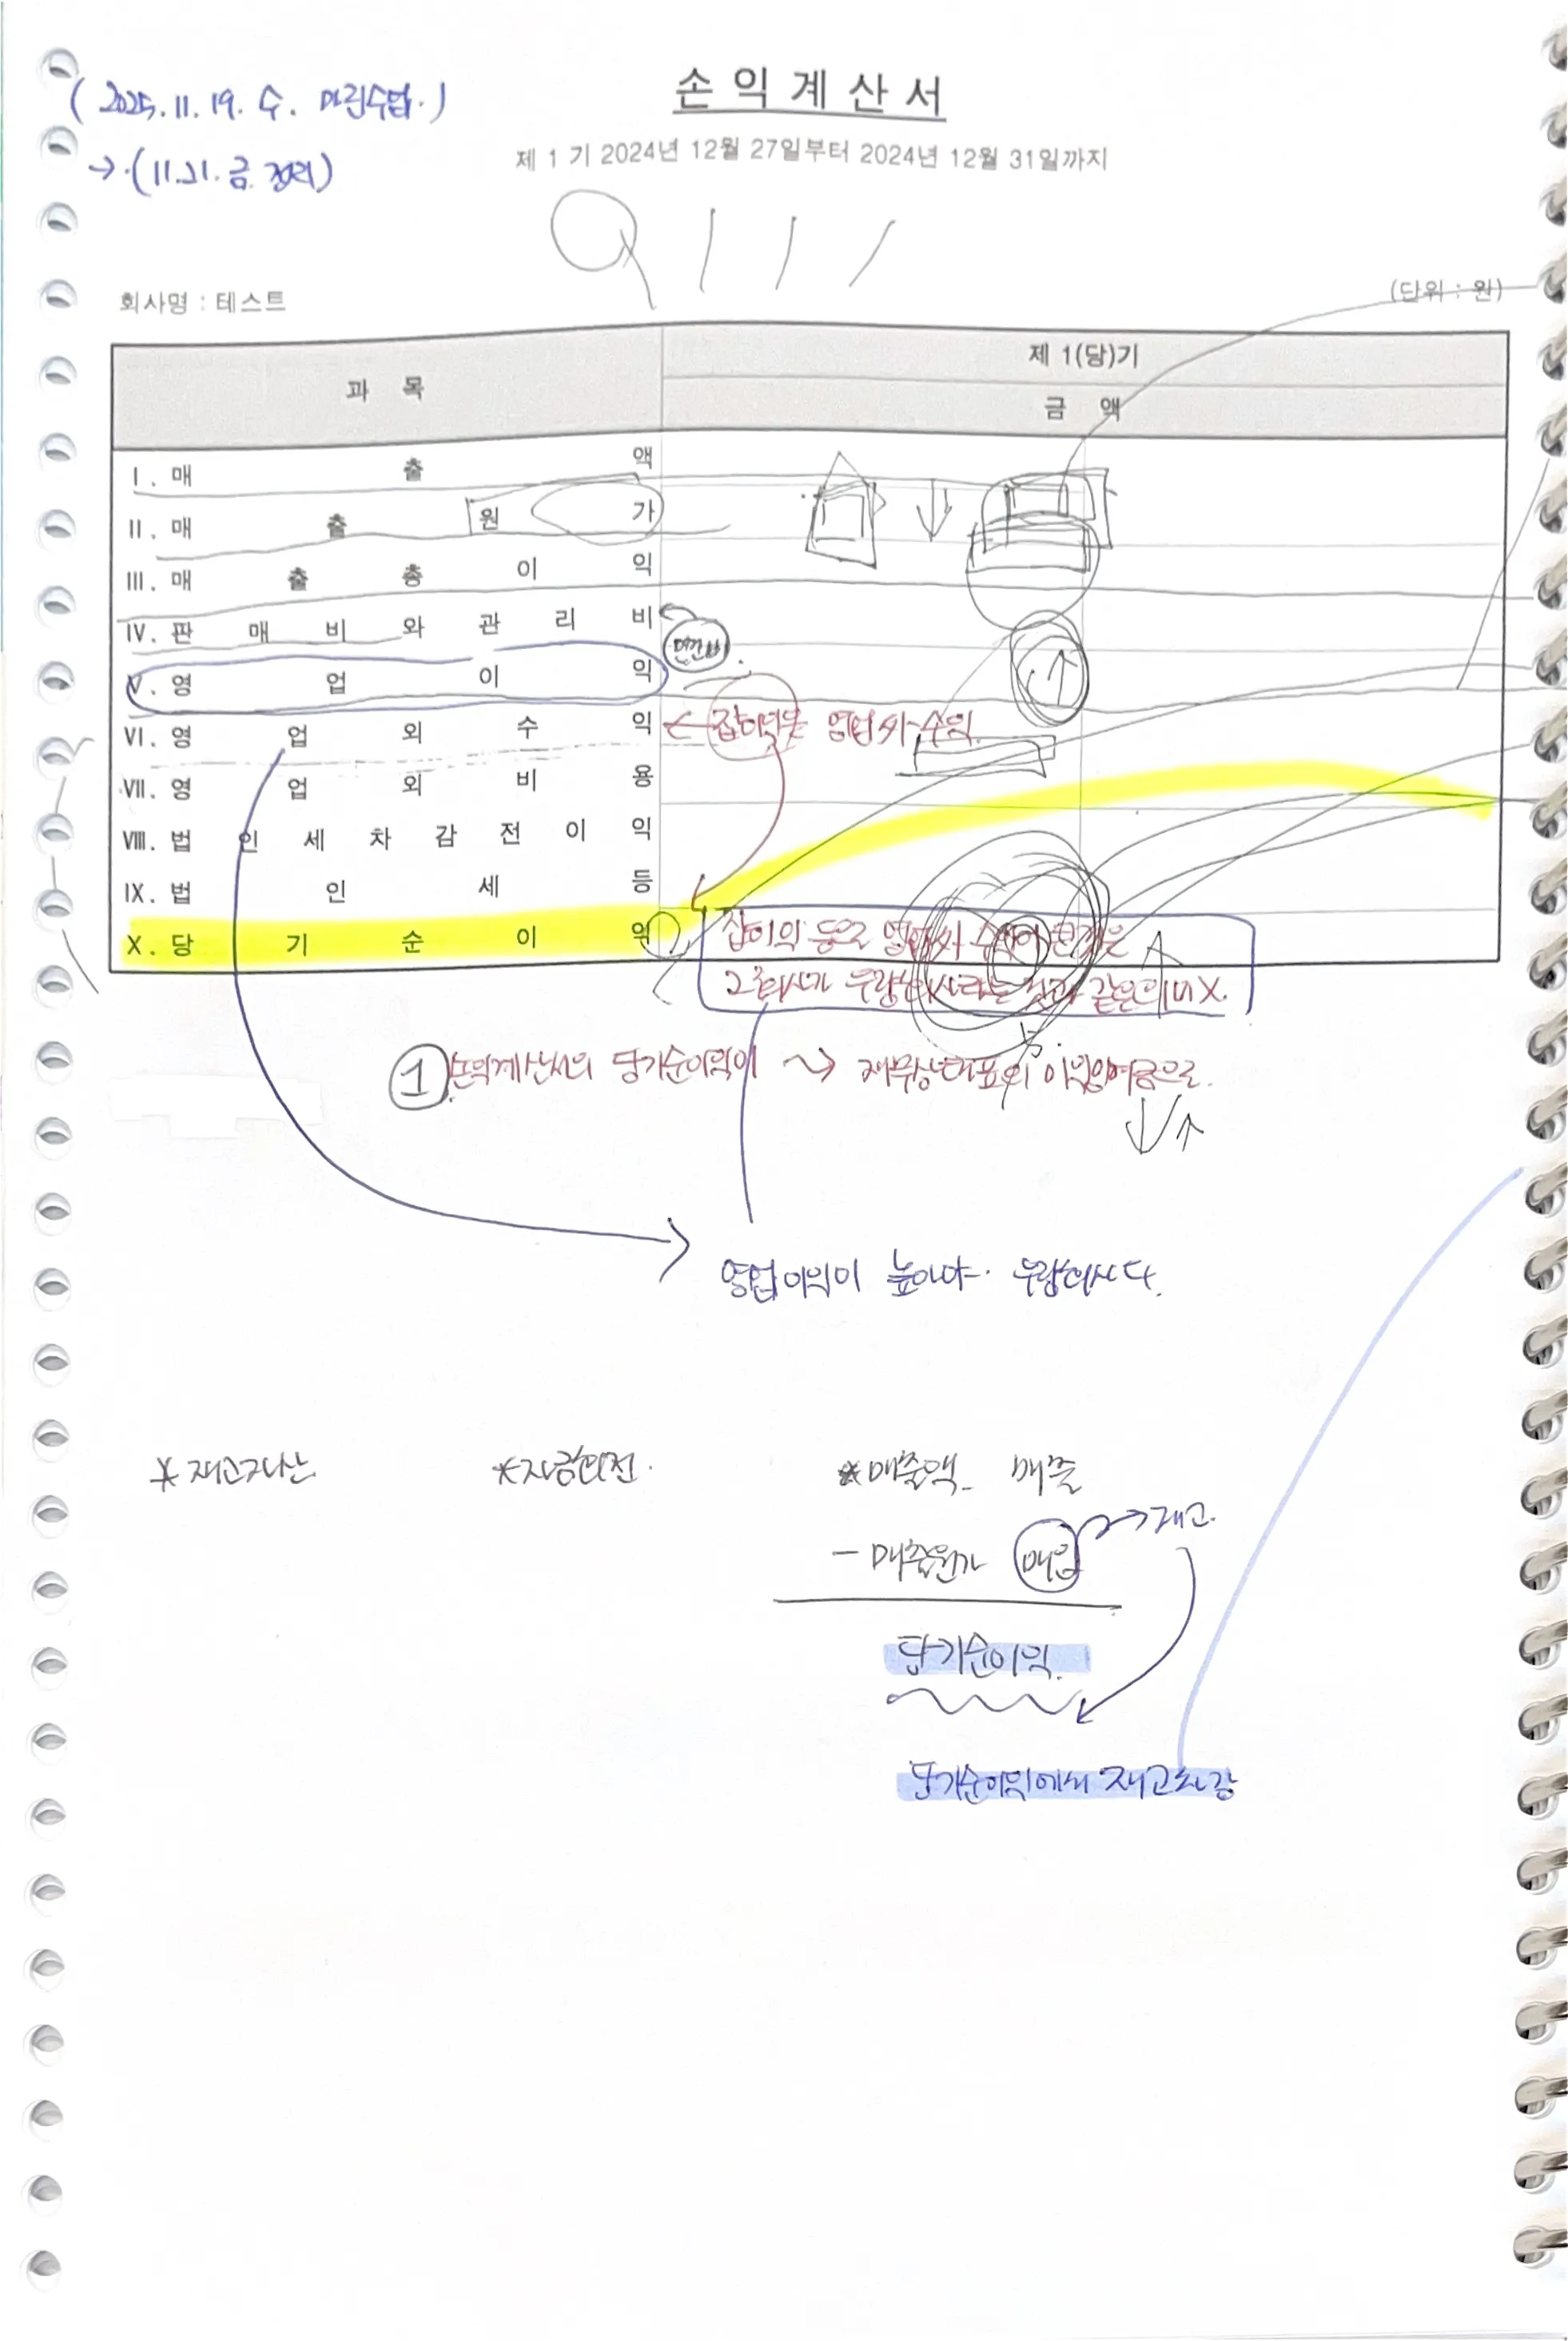 (2025. 11. 19. 수. 마린수업.)
→ (11. 21. 금. 정리)
손 익 계 산 서
제 1 기 2024년 12월 27일부터 2024년 12월 31일까지
회사명 : 테스트
(단위 : 원)
과 목
제 1(당)기
금 액
I. 매 출 액
II. 매 출 원 가
III. 매 출 총 이 익
IV. 판 매 비 와 관 리 비
V. 영 업 이 익
VI. 영 업 외 수 익
← 잡이익은 영업외수익.
VII. 영 업 외 비 용
VIII. 법 인 세 차 감 전 이 익
IX. 법 인 세 등
X. 당 기 순 이 익
잡이익 등으로 영업외 수익이 큰것은
그 회사가 우량회사라는 것과 같은의미 X.
① 손익계산서의 당기순이익이 → 재무상태표의 이익잉여금으로.
영업이익이 높아야. 우량회사다.
* 재고자산
* 자금회전.
* 매출액 매출
- 매출원가 매입 → 재고.
당기순이익.
당기순이익에서 재고차감